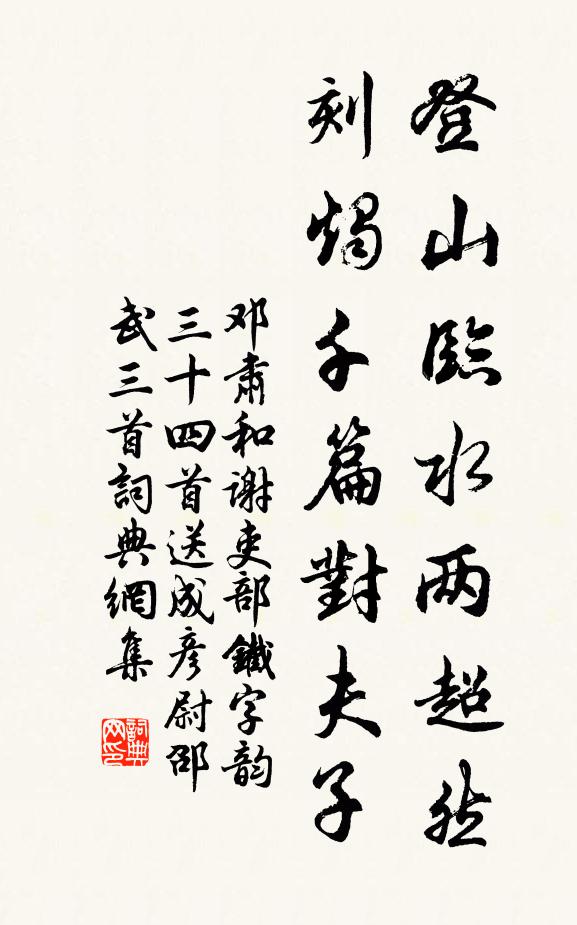 登山臨水两超然
刻燭千篇對夫子
邓肅和谢吏部鐵字韵
三十四首送成彦尉邵
武三首詞典網集
詞典网印